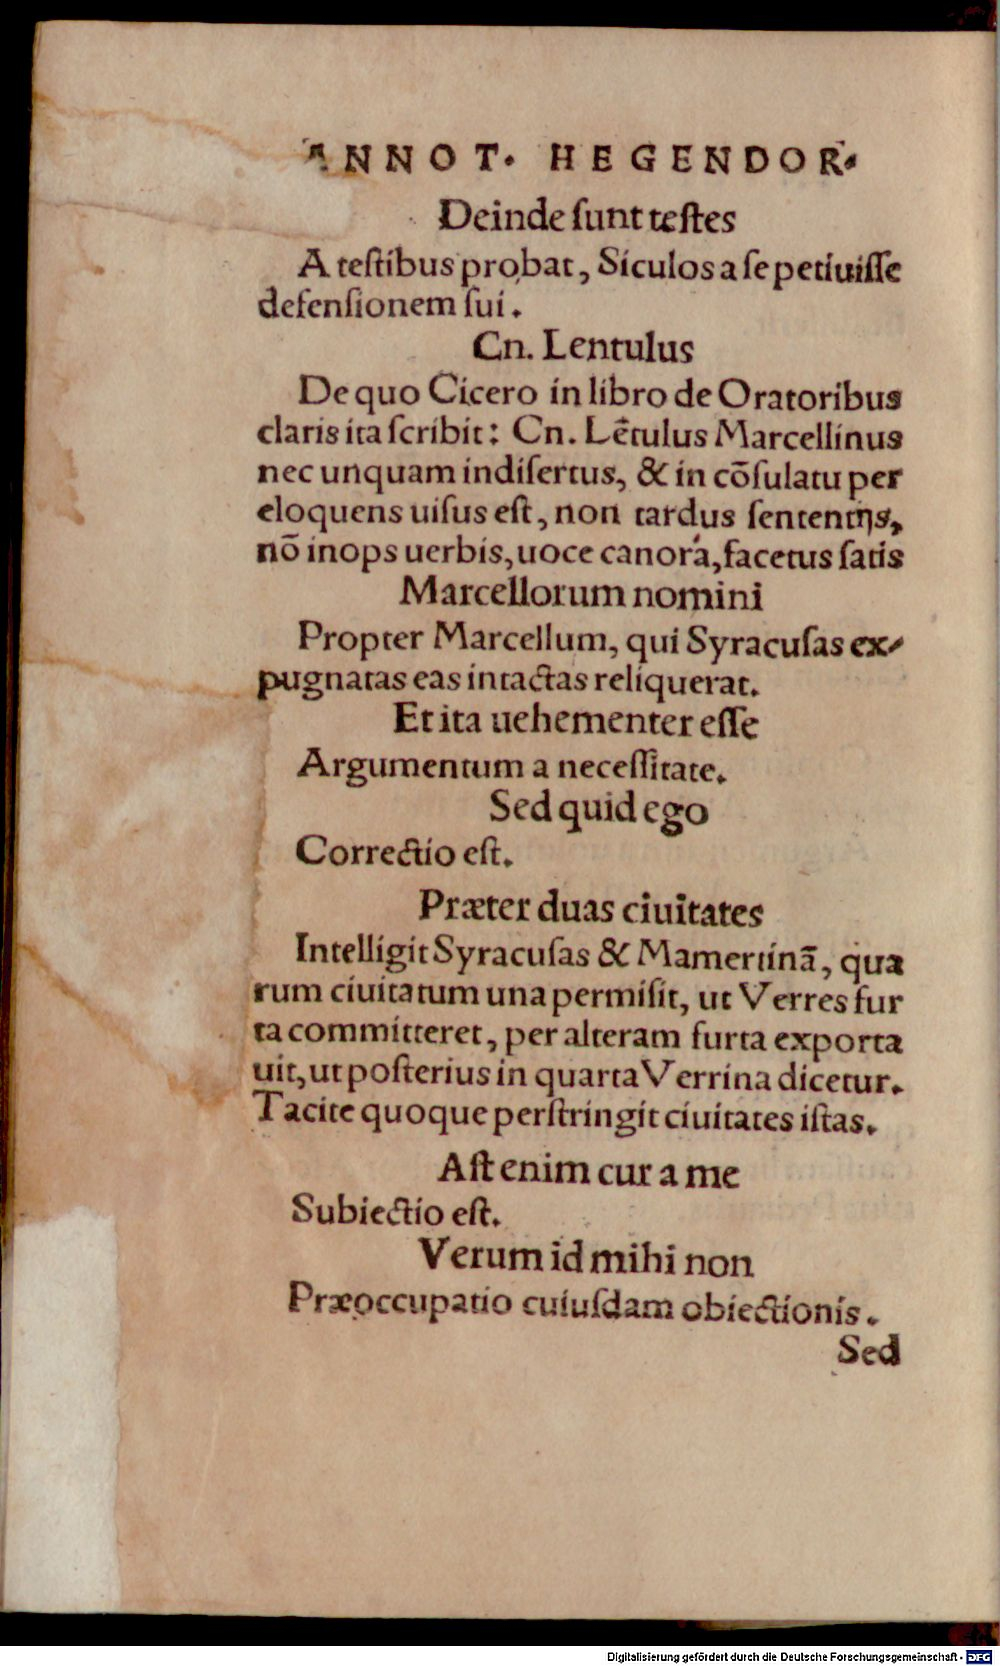 ANNOT. HEGENDOR.
Deinde ſunt teſtes
A teſtibus probat, Siculos a ſe petiuiſſe
defenſionem ſui.
Cn. Lentulus
De quo Cicero in libro de Oratoribus
claris ita ſcribit: Cn. Lẽtulus Marcellinus
nec unquam indiſertus, & in cõſulatu per
eloquens uiſus eſt, non tardus ſententijs,
nõ inops uerbis, uoce canora, facetus ſatis
Marcellorum nomini
Propter Marcellum, qui Syracuſas ex-
pugnatas eas intactas reliquerat.
Et ita uehementer eſſe
Argumentum a neceſſitate.
Sed quid ego
Correctio eſt.
Præter duas ciuitates
Intelligit Syracuſas & Mamertinã, qua
rum ciuitatum una permiſit, ut Verres fur
ta committeret, per alteram furta exporta
uit, ut poſterius in quarta Verrina dicetur.
Tacite quoque perſtringit ciuitates iſtas.
Aſt enim cur a me
Subiectio eſt.
Verum id mihi non
Præoccupatio cuiuſdam obiectionis.
Sed
Digitalisierung gefördert durch die Deutsche Forschungsgemeinschaft - DFG